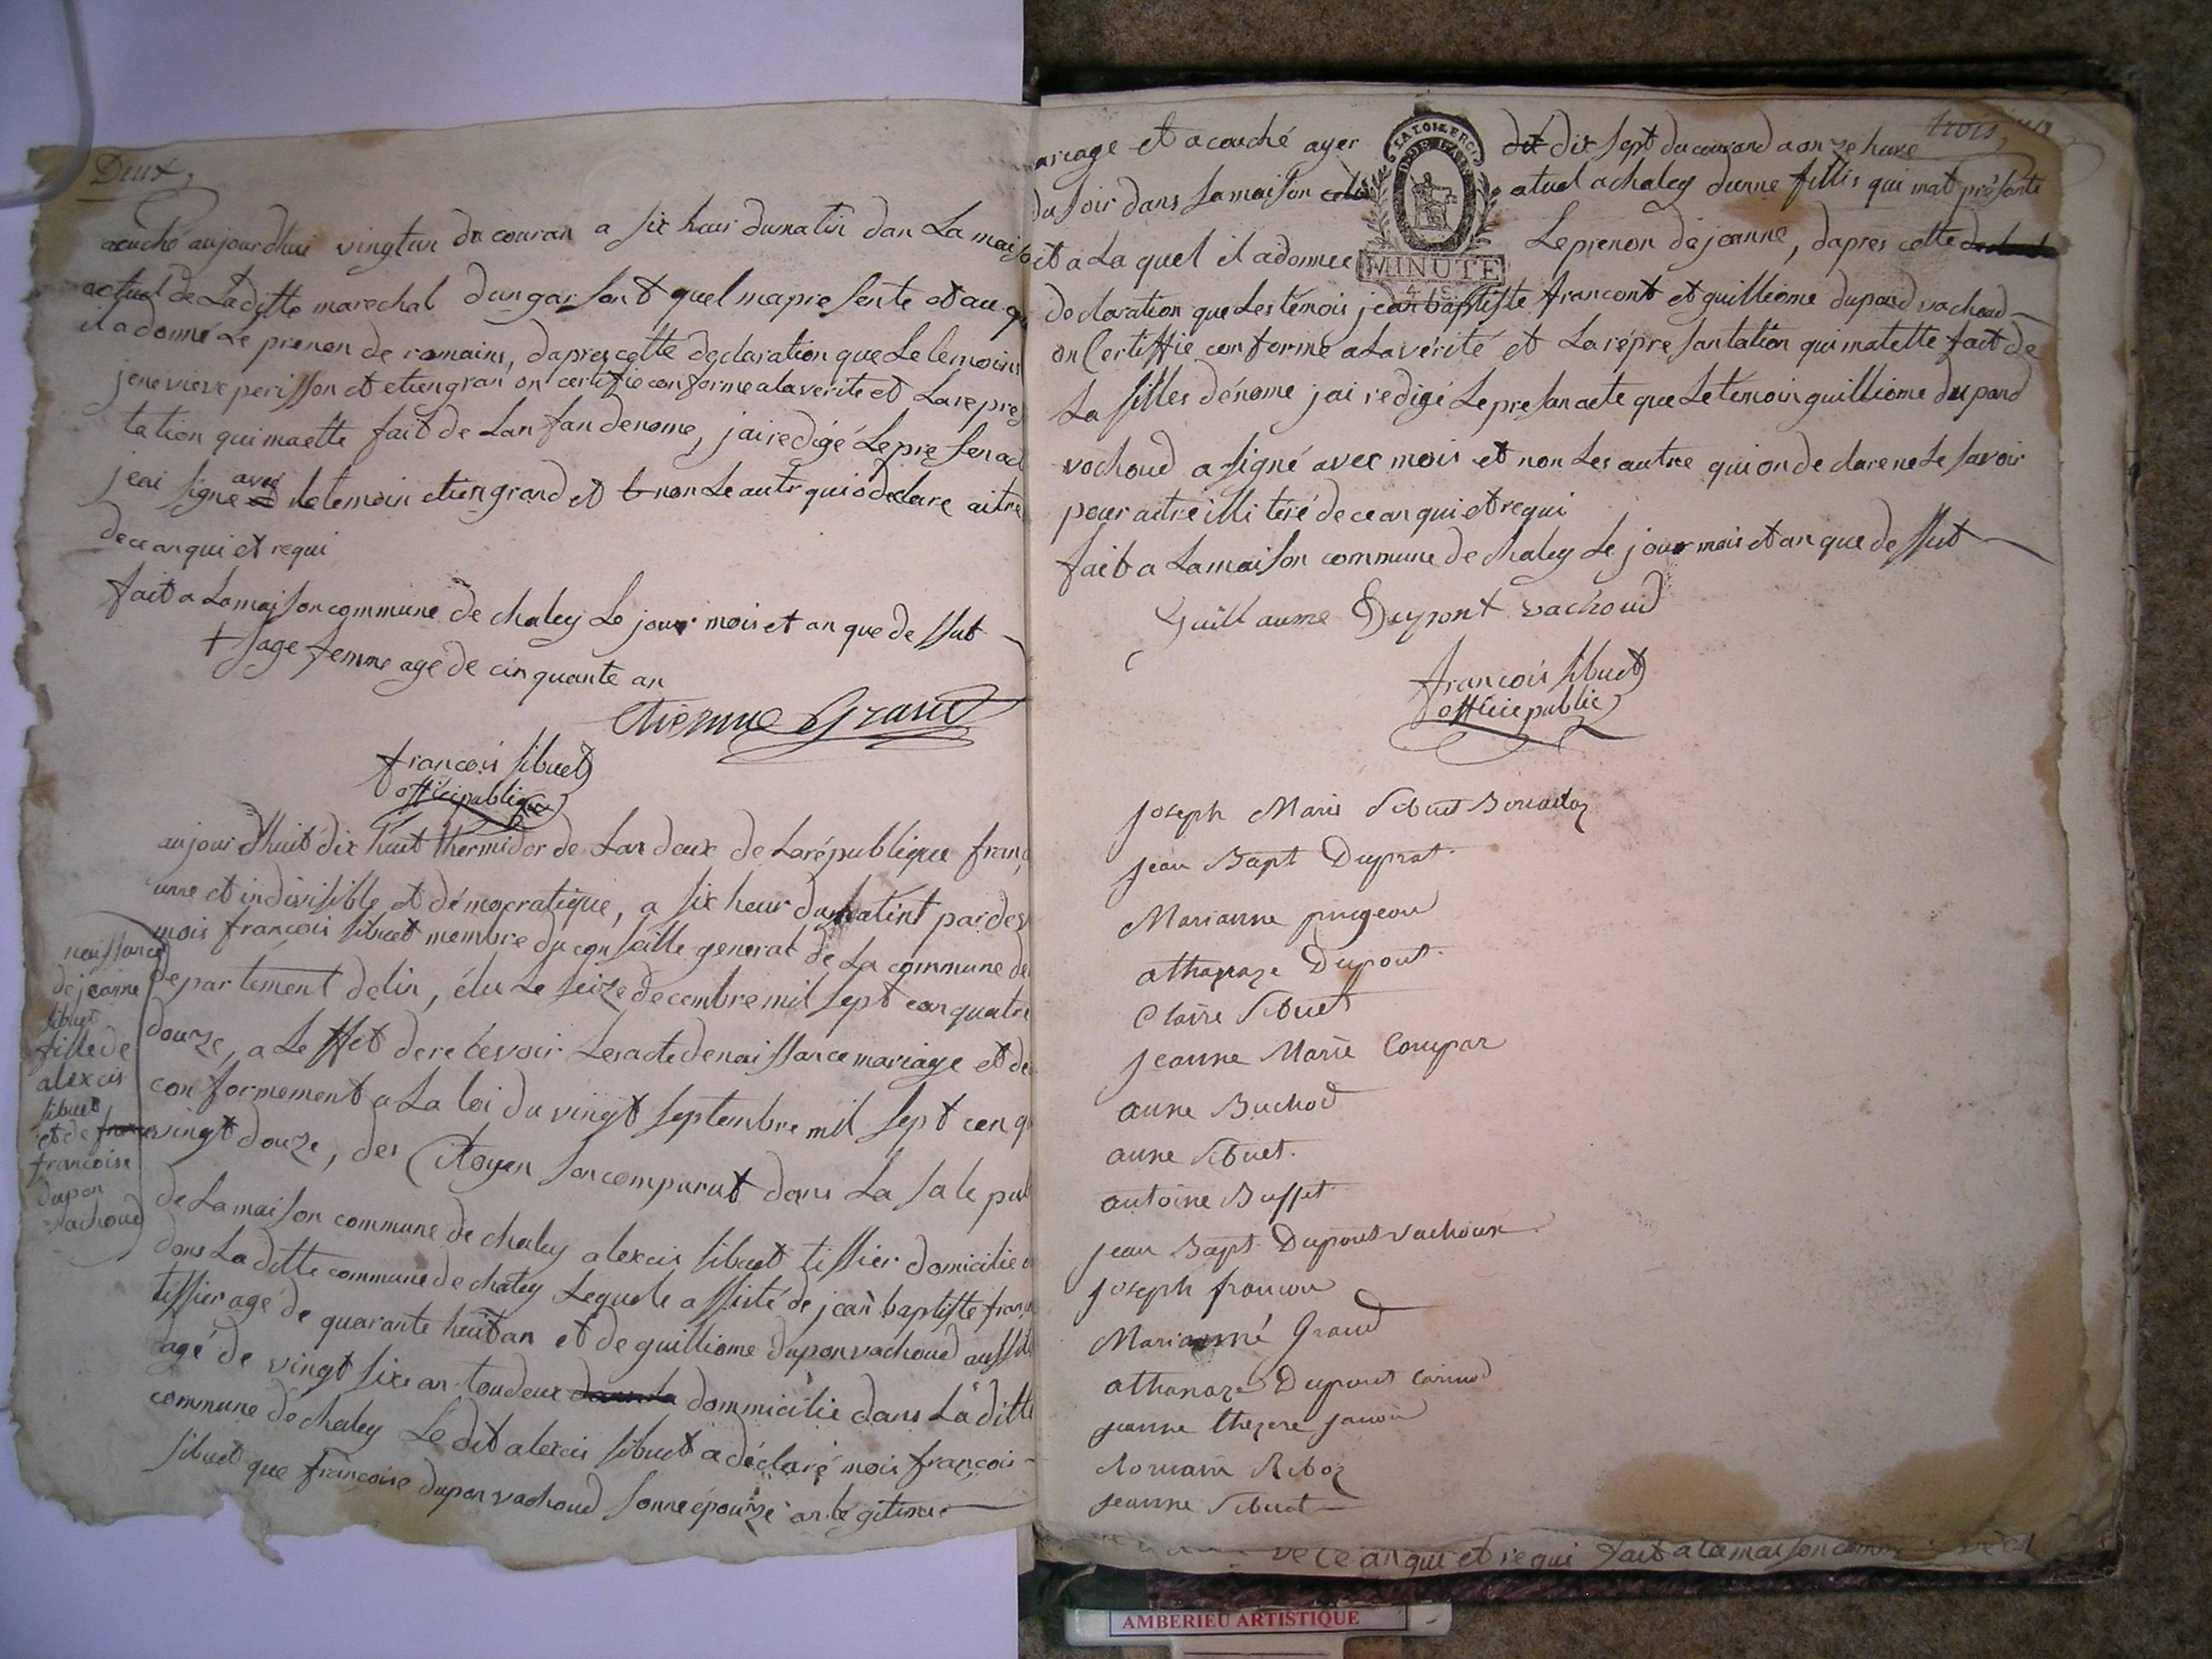 Deux,
acuché aujourdhui vingtun du couran a six heur dumatin dan La maiso
actuel de Laditte marechal dungarsont quel mapresente et au q
il a donné Le prenon de romains, daprescette declaration que Le temoins
jenevieve perisson et etiengran on certifie conforme alaverite et Larepres
tation qui maette fait de Lanfandenome, jairedigé Lepresenac
jeai signe avec letemoin etiengrand et non Le autr qui odeclare aitre
deceanqui et requi
fait a Lamaison commune de chaley Le jour mois et an que dessut
+ sage femme age de cinquante an
etienne Grand
francois sibuet
officipublique
aujourdhuit dix huit thermidor de Lan deux de Larépublique franç
unne et indivisible et démocratique, a six heur dumatint pardev
mois francois sibuet membre du conseille general de La commune de
departement delin, élu Le seize decembre mil sept can quatre
douze, a Leffet derecevoir Lesactedenaissance mariage et de
conformement a La loi du vingt septembre mil sept cen q
vingt douze, des Citoyen son comparut dans La sale pub
de Lamaison commune de chaley alexcis sibuet tissier domicilie
dans Laditte commune de chaley Lequele assisté de jean baptiste franc
tissier agé de quarante huit an et de guilliome duponvachoud aussi
dagé de vingt six an toudeux dommicilie dans Laditte
commune de chaley Ledit alexcis sibuet a déclaré mois françois
sibuet que françoise duponvachoud sonneépouze an légitime
naissance
de jeanne
sibuet
fille de
alexcis
sibuet
et de
francoise
dupon
vachoud
trois,
ariage et acouché ayer dit dix sept ducourand a onze hure
du soir dans Lamaison atuel a chaley dunne fillis qui mat présente
et a La quel il adonnee Leprenon de jeanne, dapres cette
LA LOI
MINUTE
declaration que Les témois jean baptiste francont et guilliome dupond vachoud
on Certiffie conforme a Lavérité et Lareprésantation qui matette fait de
La filles dénome jai redigé Lepresanacte que Le témoin guilliome dupond
vachoud a signé avec mois et non Les autre qui on declarene Le savoir
pour aitre illitéré deceanqui et requi
fait a Lamaison commune de chaley Le jour mois et an que dessut
Guillaume Dupont vachoud
francois sibuet
officie public
joseph Marie Sibuet
jean Bapt Duprat
Marianne pingeon
athanaze Dupont
Claire Sibuet
jeanne Marie Compar
anne Buchod
anne Sibuet.
antoine Buffet
jean Bapt Dupont vachoux
joseph francon
Marianne Grand
athanaze Dupont
jeanne therese
Romain Riboz
jeanne Sibuet
deceanqui et requi fait a lamaison comm
AMBERIEU ARTISTIQUE